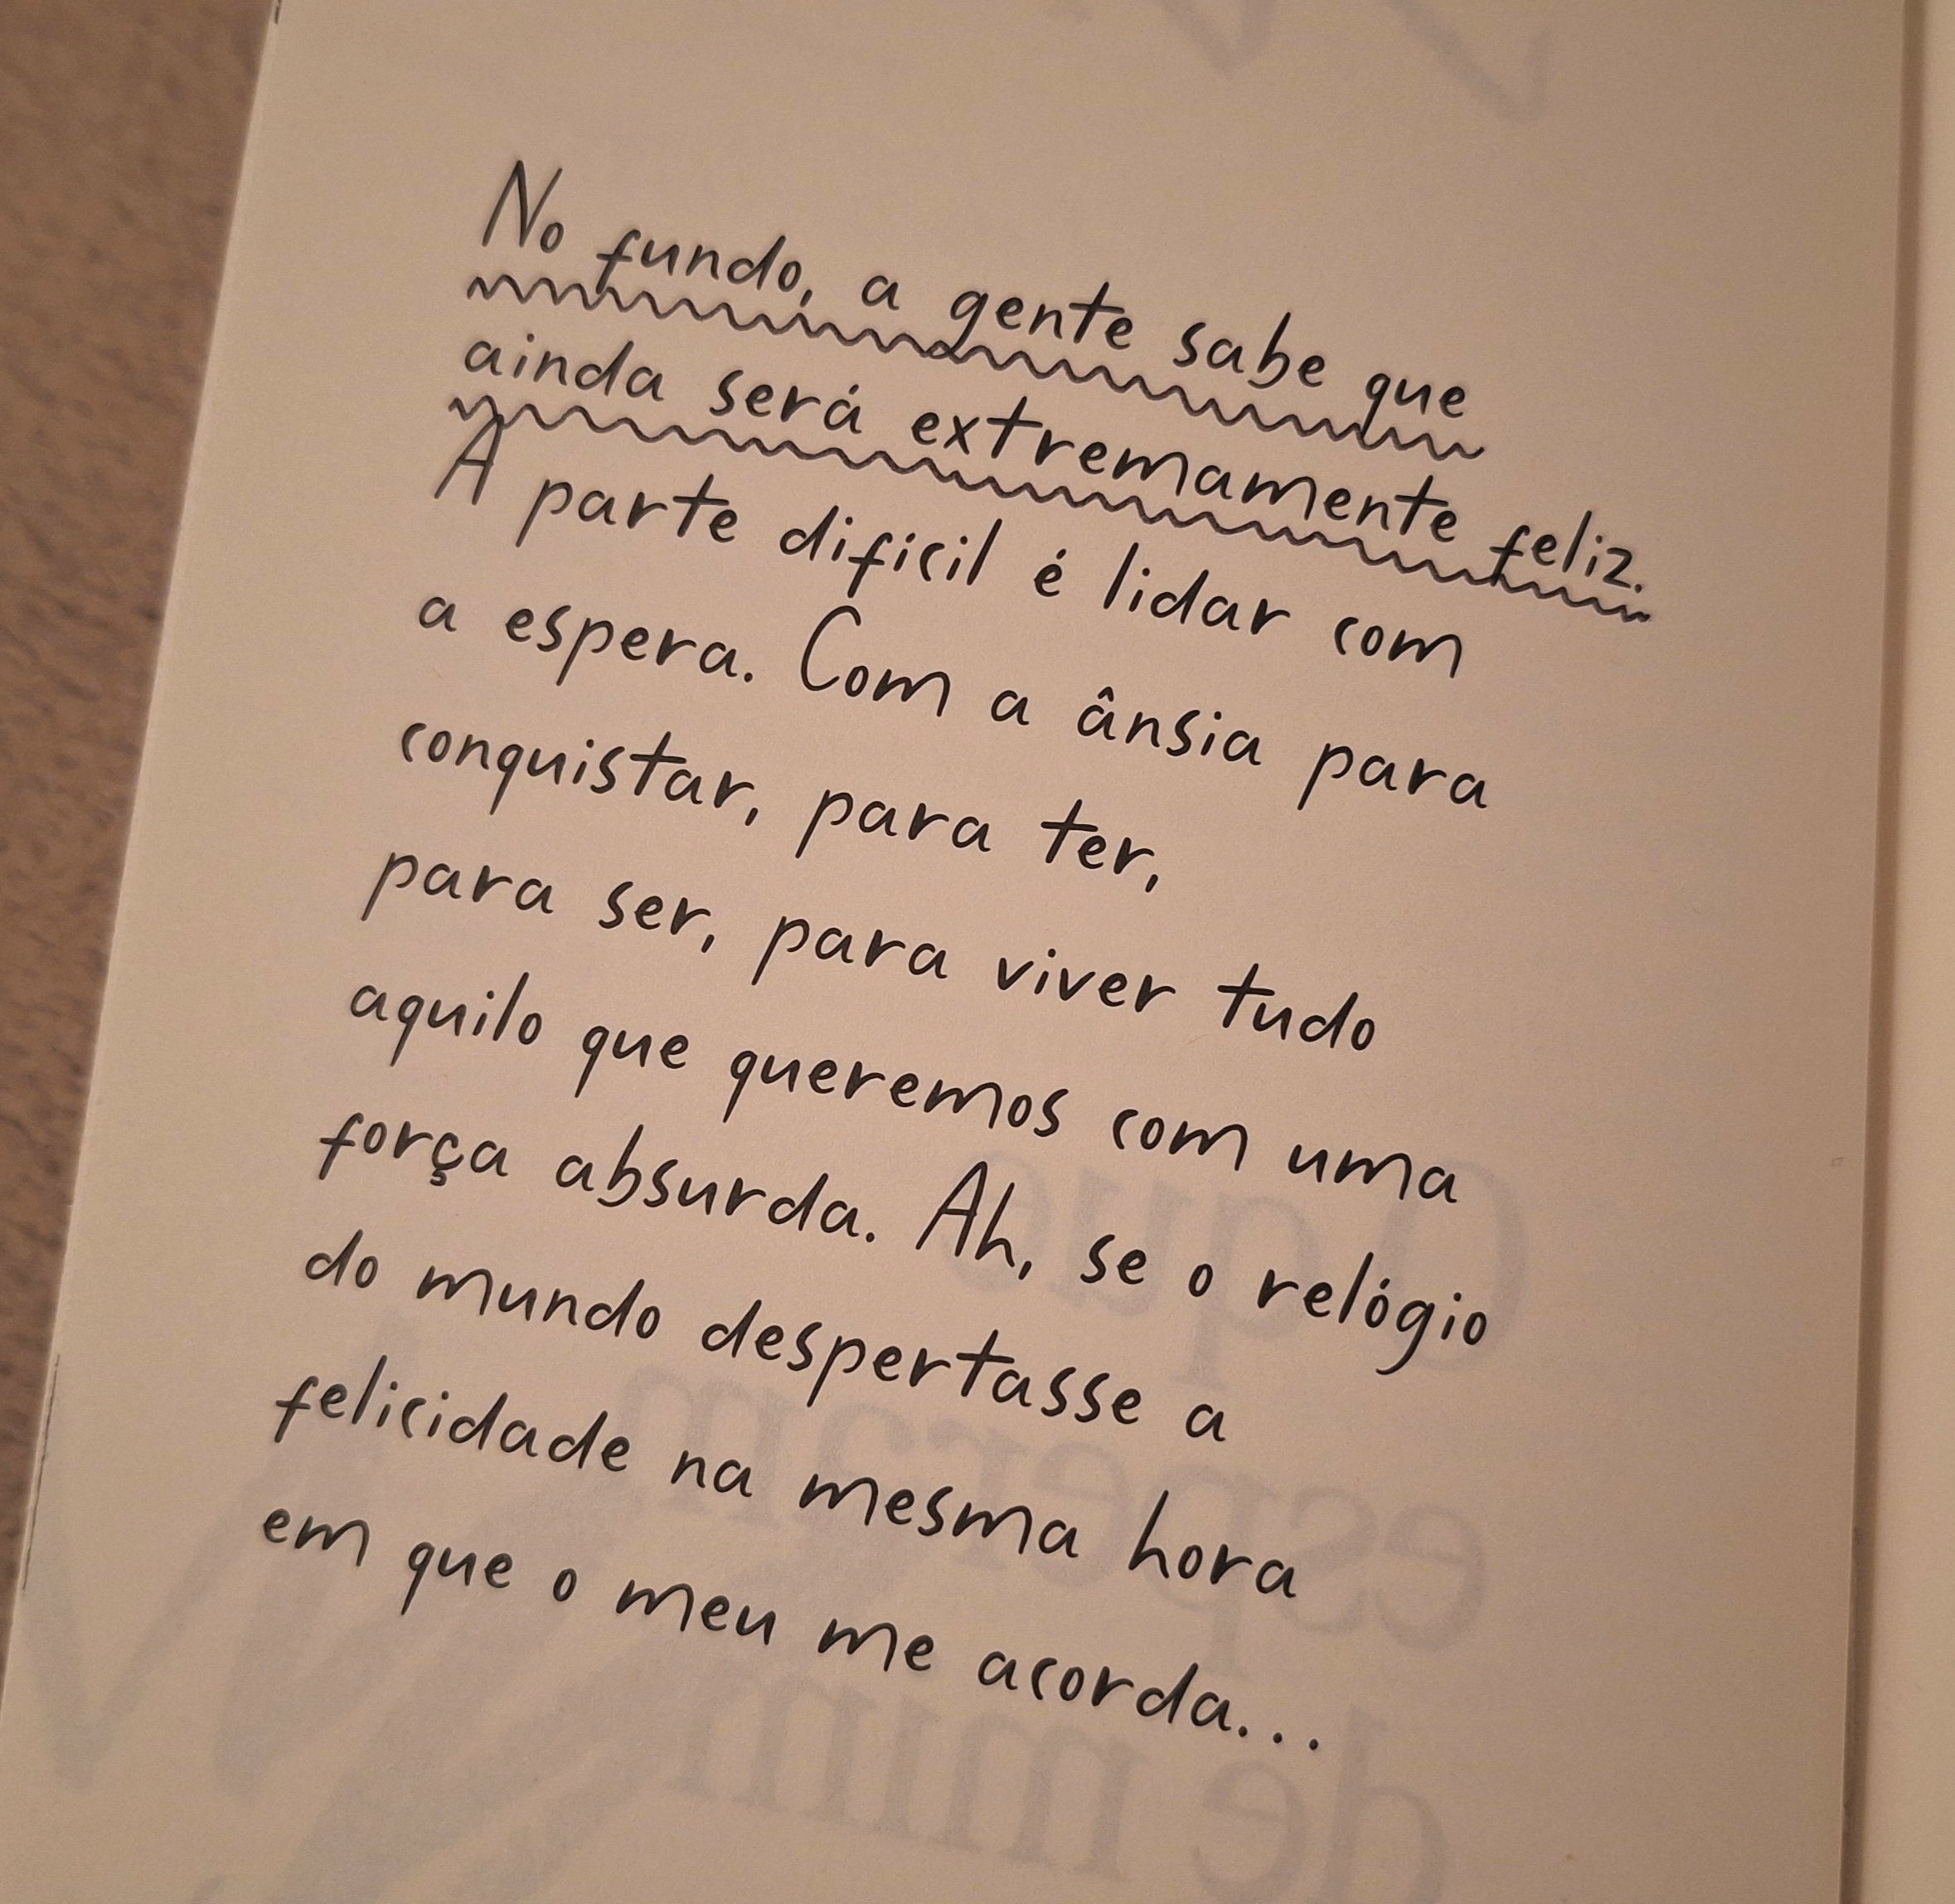 No fundo, a gente sabe que
ainda será extremamente feliz.
A parte difícil é lidar com
a espera. Com a ânsia para
conquistar, para ter,
para ser, para viver tudo
aquilo que queremos com uma
força absurda. Ah, se o relógio
do mundo despertasse a
felicidade na mesma hora
em que o meu me acorda...
O que
esperam
de mim